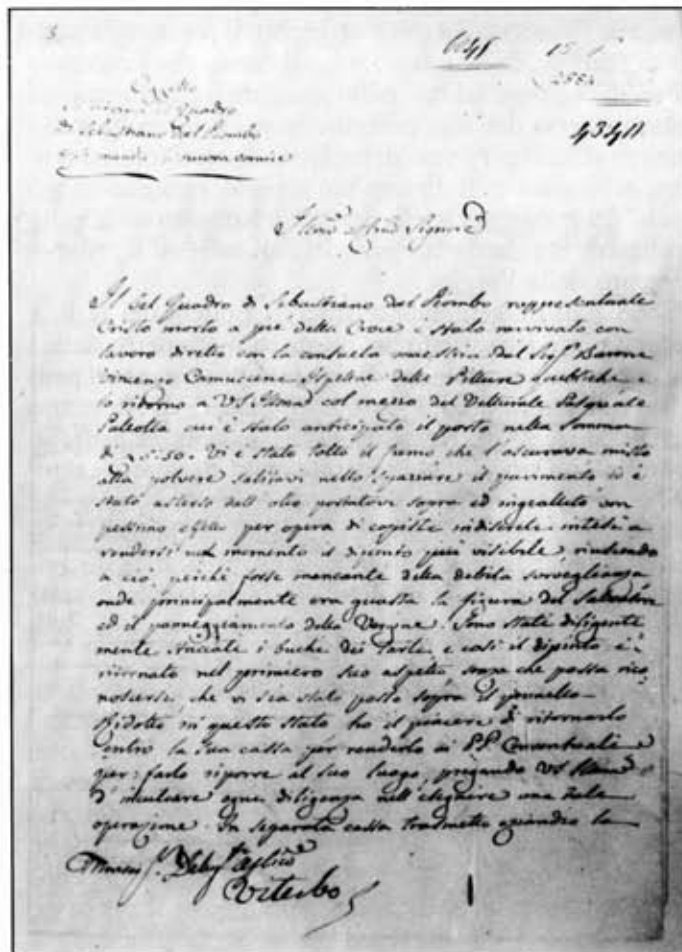 6641
2554
43411
Quadro
di Sebastiano del Piombo
nuova cornice
Il bel Quadro di Sebastiano del Piombo rappresentante
Cristo morto a piè della Croce è stato ravvivato con
lavoro diretto con la consueta maestria dal Sig.r Barone
Vincenzo Camuccini Ispettore delle Pitture pubbliche, e
lo ritorno a VS Illma col mezzo del Vetturale Pasquale
Paleotta cui è stato anticipato il porto nella somma
di 50. Vi è stato tolto il fumo che l'oscurava misto
alla polvere salitavi nello spazzare il pavimento si è
stato asterso dall'olio postatovi sopra ed ingiallito con
pessimo effetto per opera di copisti indiscreti intesi a
rendersi nel momento il dipinto più visibile, riuscendo
a ciò perchè forse mancante della debita sorveglianza
onde principalmente era guasta la figura del Salvatore
ed il panneggiamento della Vergine. Sono state diligente
mente stuccate i buchi dei Tarli, e così il dipinto è
ritornato nel primiero suo aspetto, senza che possa rico
noscersi, che vi sia stato posto sopra il pennello
Ridotto in questo stato ho il piacere di ritornarlo
entro la sua cassa per renderlo ai PP. Conventuali e
per farlo riporre al suo luogo, pregando VS Illma
d'inculcare ogni diligenza nell'eseguire una tale
operazione. In separata cassa trasmetto quandro la
Viterbo